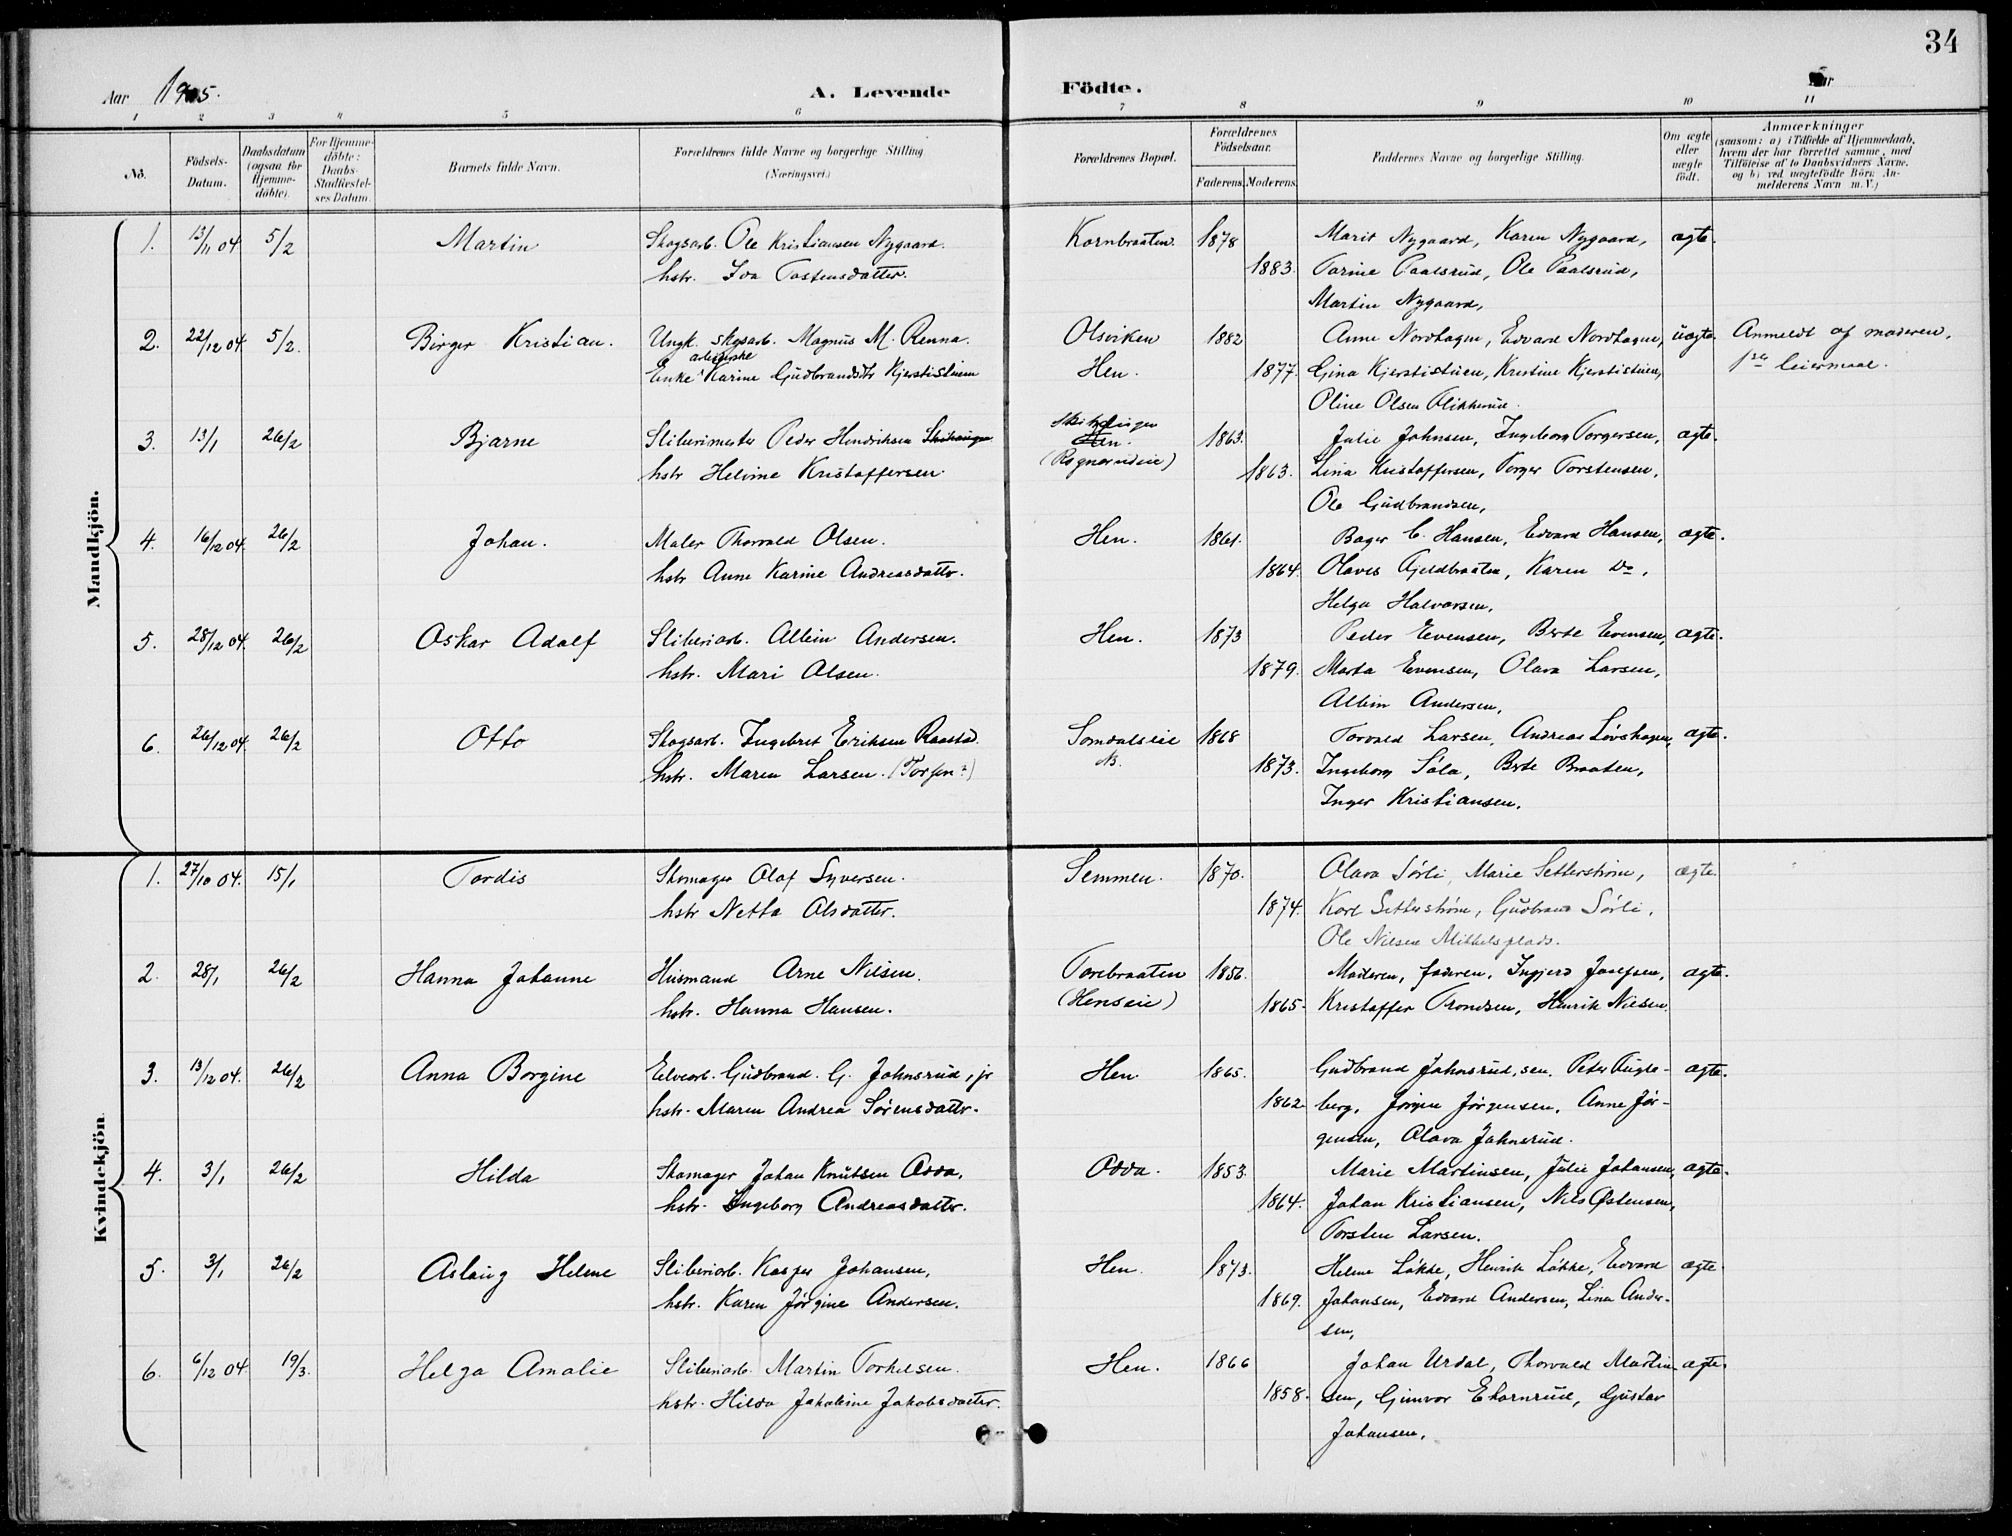 34
Aar 1905.
A. Levende Födte.
Aar
1 2 3 4 5 6 7 8 9 10 11
No.
Födsels-Datum.
Daabsdatum (ogsaa for Hjemme-döbte).
For Hjemme-döbte: Daabs-Stadfæstelses Datum.
Barnets fulde Navn.
Forældrenes fulde Navne og borgerlige Stilling. (Næringsvei.)
Forældrenes Bopæl.
Forældrenes Födselsaar.
Faderens. Moderens.
Faddernes Navne og borgerlige Stilling.
Om ægte eller uægte födt.
Anmærkninger
(saasom: a) i Tilfælde af Hjemmedaab, hvem der har forrettet samme, med Tilföielse af to Daabsvidners Navne, og b) ved uægtefödte Börn Anmelderens Navn m. V.)
Mandkjön.
1. 13/11 04 5/2 Martin Skogsarb. Ole Kristiansen Nygaard. Kornbraaten. 1878 Marit Nygaard, Karen Nygaard, ægte.
hstr. Ida Tostensdatter. 1883. Torine Paalsrud, Ole Paalsrud,
Martin Nygaard,
2. 22/12 04 5/2. Birger Kristian. Ungk. skogsarb. Magnus M. Renna. Olsviken 1882 Anne Nordhagen, Edvard Nordhagen, uægte. Anmeldt af moderen.
Enke arbeiderske Karine Gudbrandsdtr Kjerstistuen Hen. 1877. Gina Kjerstistuen, Kristine Kjerstistuen, 1ste leiermaal.
Oline Olsen Flikkerud.
3. 13/1 26/2 Bjarne Sliberimester Peder Hendriksen Hen. 1863. Julie Johnsen, Ingeborg Torgersen, ægte.
hstr Helime Kristoffersen. (Rognerudeie) 1863. Lina Kristoffersen, Torger Torstensen,
Ole Gudbrandsen,
4. 16/12 04 26/2 Johan. Maler Thorvald Olsen. Hen. 1861. Bager C. Hansen, Edvard Hansen, ægte.
hstr Anne Karine Andreasdattr. 1864. Olaves Gjeldbraaten, Karen Do,
Helga Halvorsen.
5. 28/12 04. 26/2 Oskar Adolf Sliberiarb. Albin Andersen. Hen. 1873 Peder Evensen, Berte Evensen, ægte.
hstr. Mari Olsen. 1879. Marta Evensen, Olava Larsen,
Albin Andersen,
6. 26/12 04. 26/2 Otto Skogsarb. Ingebret Eriksen Raastad. Somdalseie 1868 Torvald Larsen, Andreas Løvhagen, ægte.
hstr. Maren Larsen. N. 1873. Ingeborg Sola, Berte Braaten,
Inger Kristiansen.
Kvindekjön
1. 27/10 04. 15/1 Tordis Skomager Olaf Syversen. Semmen. 1870. Olava Sørli, Marie Setterstrøm, ægte.
hstr Netta Olsdatter. 1874. Karl Setterstrøm, Gudbrand Sørli,
Ole Nilsen Mikkelsplads.
2. 28/1 26/2 Hanna Johanne Husmand Arne Nilsen. Torebraaten 1856. Moderen, faderen, Ingjerd Josefsen, ægte.
hstr. Hanna Hansen. (Henseie) 1865. Kristoffer Trondsen, Henrik Nilsen.
3. 13/12 04. 26/2 Anna Borgine Elvearb. Gudbrand G. Johnsrud, jr Hen 1865. Gudbrand Johnsrud, sen. Peder Fugle- ægte.
hstr. Maren Andrea Sørensdattr. 1862 berg, Jørgen Jørgensen, Anne Jør-
gensen, Olava Johnsrud.
4. 3/1 26/2 Hilda Skomager Johan Knutsen Odda, Odda. 1853. Marie Martinsen, Julie Johansen, ægte.
hstr. Ingeborg Andreasdatter. 1864. Johan Kristiansen, Nils Østensen,
Torsten Larsen.
5. 3/1 26/2 Aslaug Helene Sliberiarb. Kasper Johansen, Hen. 1873. Helene Løkke, Henrik Løkke, Edvard ægte.
hstr. Karen Jørgine Andersen. 1869. Johansen, Edvard Andersen, Lina Ander-
sen,
6. 6/12 04 19/3. Helga Amalie Sliberiarb. Martin Torkelsen. Hen. 1866 Johan Urdal, Thorvald Martin- ægte.
hstr. Hilda Jakobine Jakobsdatter. 1858. sen, Gunvor Ekornrud, Gustav
Johansen,